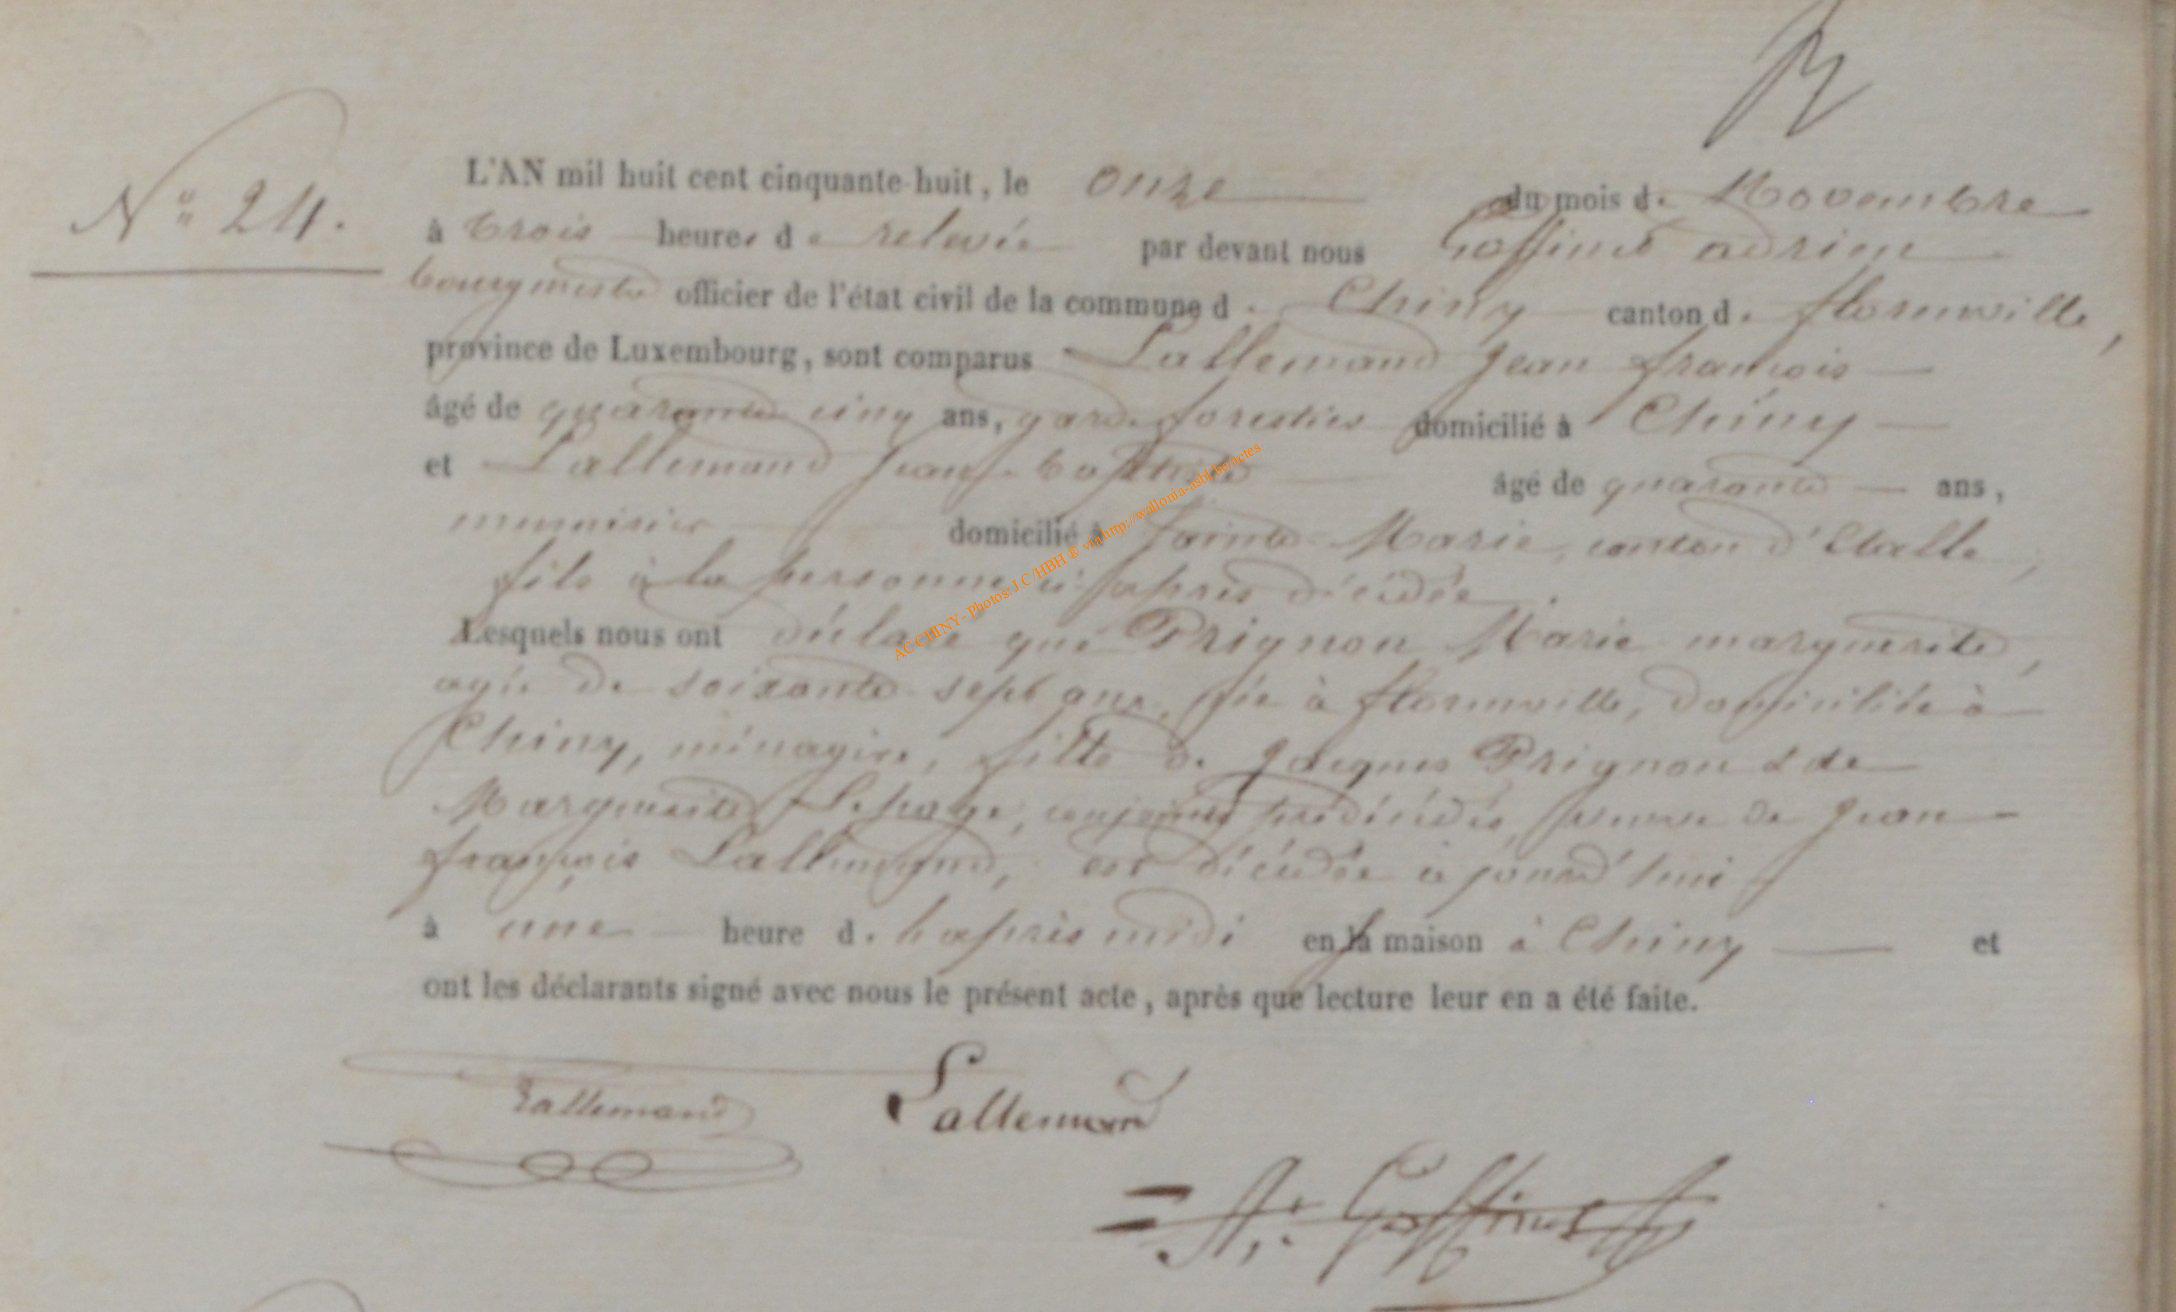 N° 24.
L'AN mil huit cent cinquante-huit, le onze du mois de Novembre
à trois heures de relevée par devant nous Goffinet adrien
bourgmestre officier de l'état civil de la commune de Chiny canton de florenville,
province de Luxembourg, sont comparus Lallemand Jean françois
âgé de quarante cinq ans, garde forestier domicilié à Chiny
et Lallemand Jean-baptiste âgé de quarante ans,
menuisier domicilié à Sainte-Marie, canton d'Etalle,
fils à la personne ci-après décédée.
Lesquels nous ont déclaré que Prignon Marie marguerite,
agée de soixante sept ans, née à florenville, domiciliée à
Chiny, ménagère, fille de Jacques Prignon & de
Marguerite Lepage, conjoints prédécédés, veuve de Jean
françois Lallemand, est décédée ce jourd'hui
à une heure de l'après midi en sa maison à Chiny et
ont les déclarants signé avec nous le présent acte, après que lecture leur en a été faite.
Lallemand Lallemand
A. Goffinet
AC CHINY- Photos: J.C/HBH ® via http://wallonia-asbl.be/actes